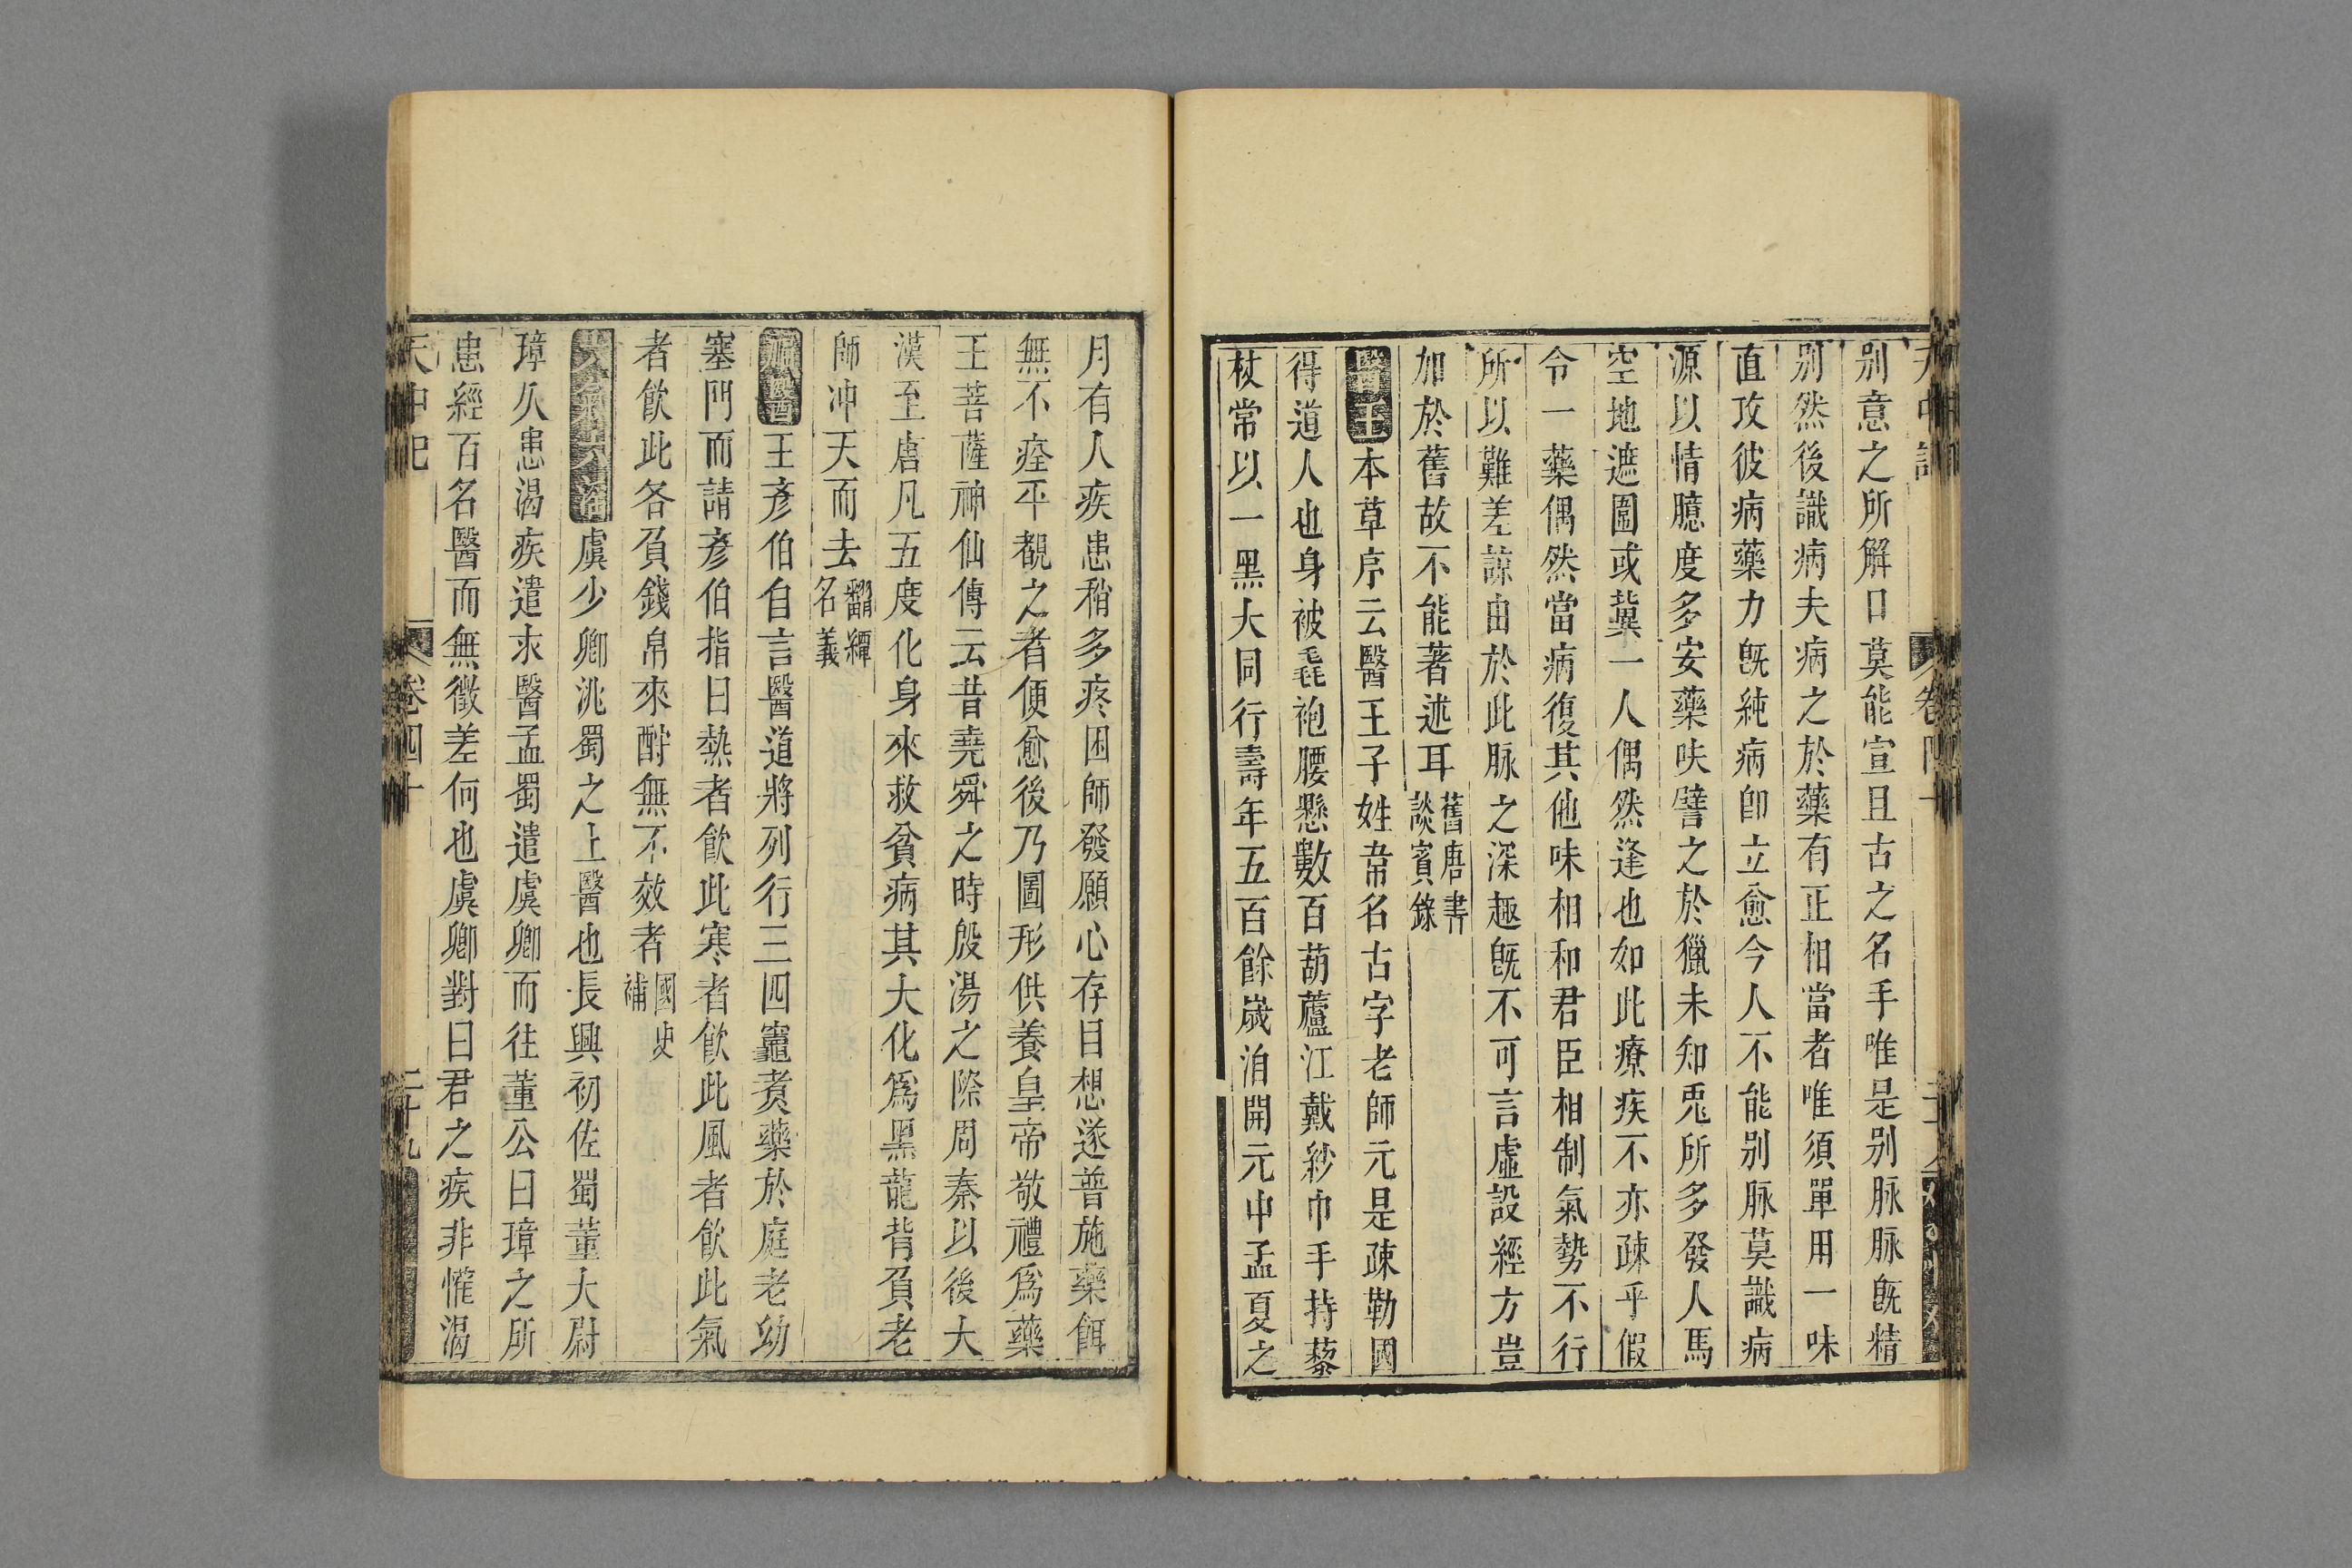 别意之所解口莫能宣且古之名手唯是别脉脉旣精
别然後識病夫病之於藥有正相當者唯須單用一味
直攻彼病藥力旣純病卽立愈今人不能别脉莫識病
源以情臆度多安藥味譬之於獵未知兎所多發人馬
空地遮圍或冀一人偶然逢也如此療疾不亦疎乎假
令一藥偶然當病復其他味相和君臣相制氣勢不行
所以難差諒由於此脉之深趣旣不可言虛設經方豈
加於舊故不能著述耳舊唐書談賓錄
醫王本草序云醫王子姓韋名古字老師元是疎勒國
得道人也身被毳袍腰懸數百葫蘆江戴紗巾手持藜
杖常以一黑犬同行壽年五百餘歲洎開元中孟夏之
月有人疾患稍多疼困師發願心存目想遂普施藥餌
無不痊平覩之者便愈後乃圖形供養皇帝敬禮爲藥
王菩薩神仙傳云昔堯舜之時殷湯之際周秦以後大
漢至唐凡五度化身來救貧病其犬化爲黑龍背負老
師冲天而去翻繹名義
王彥伯自言醫道將列行三四竈煑藥於庭老幼
塞門而請彥伯指曰熱者飮此寒者飮此風者飮此氣
者飮此各負錢帛來酧無不效者國史補
虞少卿洮蜀之上醫也長興初佐蜀董大尉
璋久患渴疾遣求醫孟蜀遣虞卿而往董公曰璋之所
患經百名醫而無徵差何也虞卿對曰君之疾非惟渴
天中記 卷四十 二十九